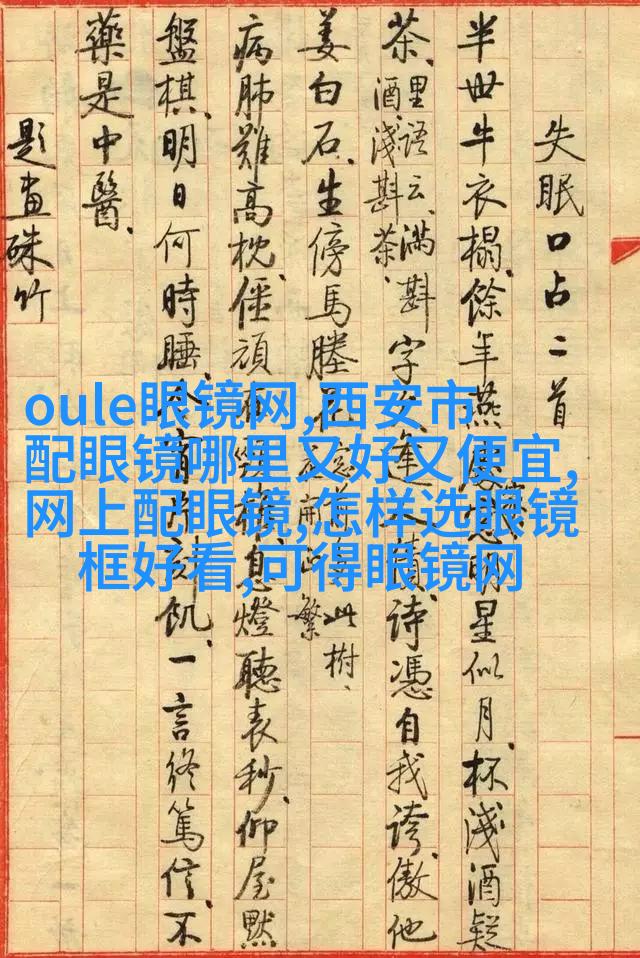 失眠口占二首
半世牛衣榻、餘年燕明星似月、杯淺酒疑
茶、里語云、滿斟
酒、淺斟茶、字逢人詩憑自我誇、傲他
姜白石、生傍馬塍此樹、
繁
病肺難高枕、僵頑息燈聽表秒、仰屋默
盤棋、明日何時睡、飢、一言終篤信、不
藥是中醫、
題畫硃竹
oule眼镜网,西安市
配眼镜哪里又好又便宜,
网上配眼镜,怎样选眼镜
框好看,可得眼镜网